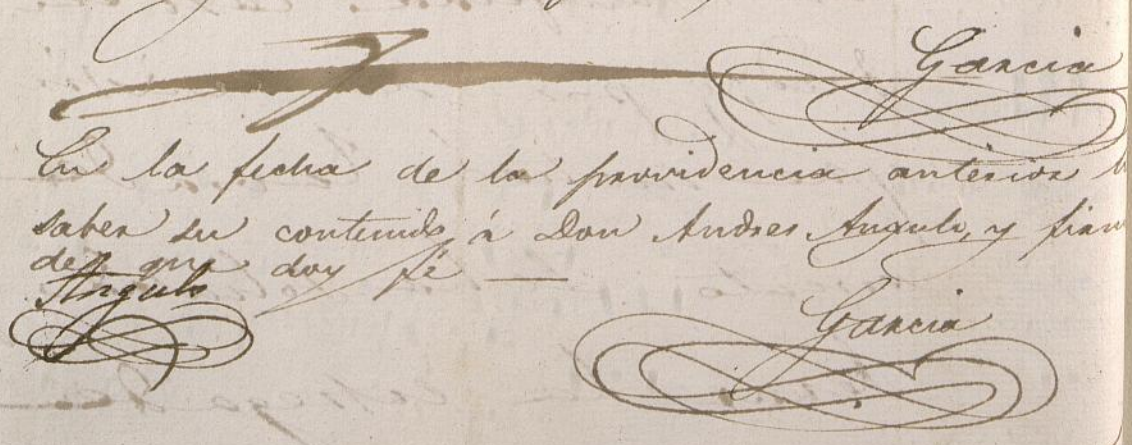 Garcia
En la fecha de la providencia anterior
saber su contenido á Don Andres Angulo, y
de que doy fé
Angulo
Garcia